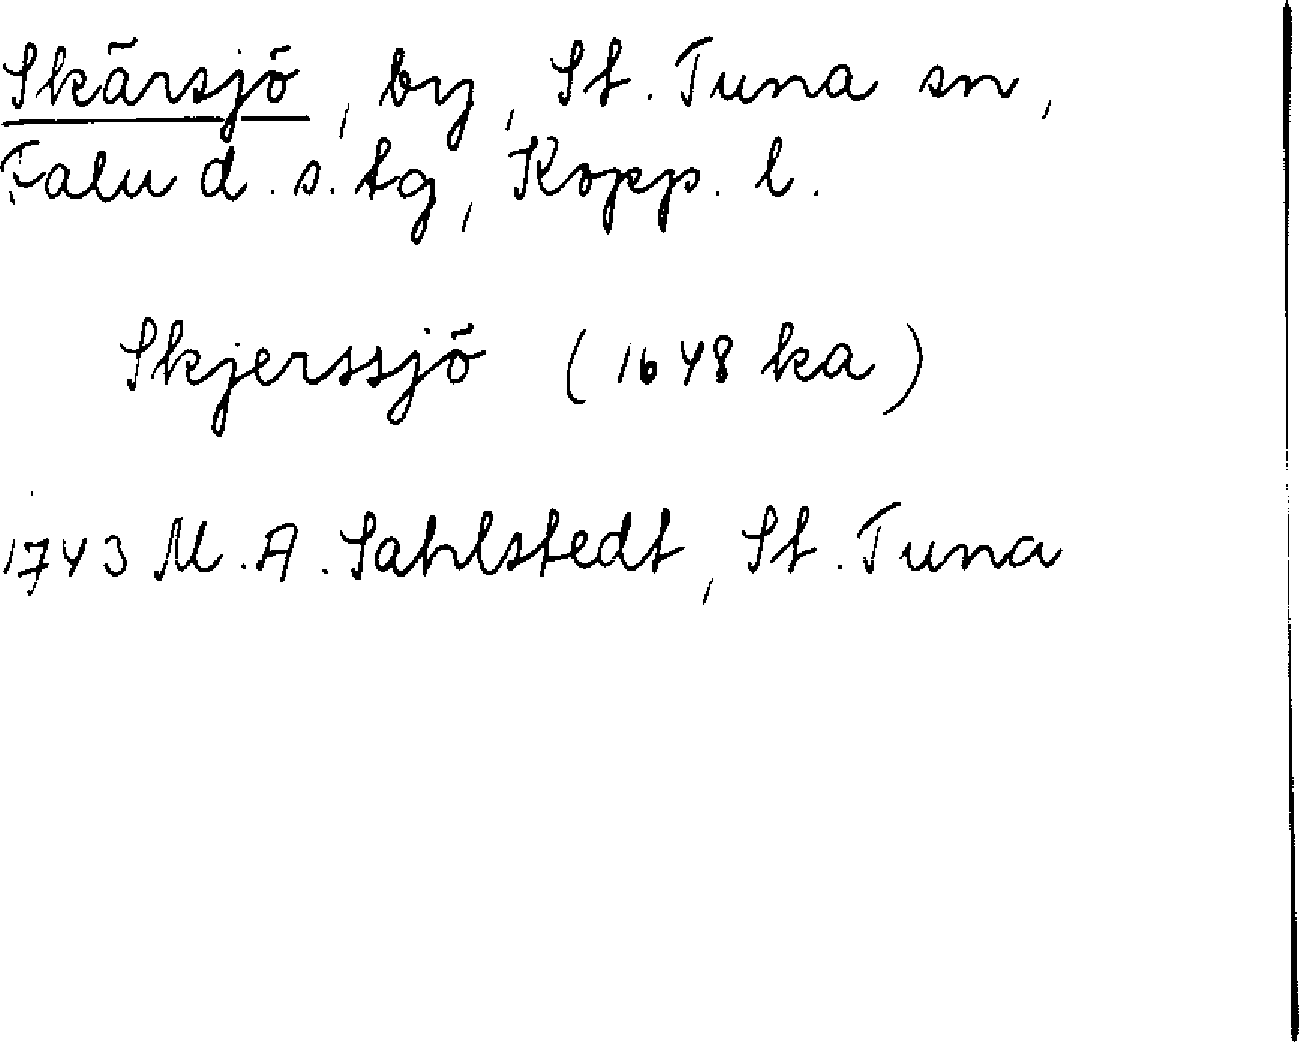 Skärsjö, by, St. Tuna sn,
Falu d. s. tg, Kopp. l.
Skjerssjö (1648 ka)
1743 M. A. Sahlstedt, St. Tuna